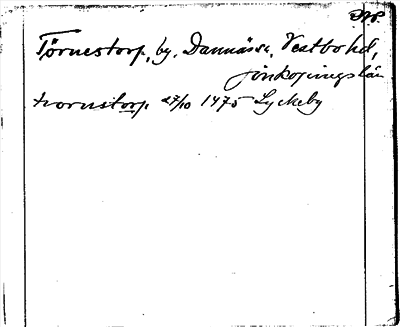 Törnestorp, by, Dannäs sn, Vestbo hd,
Jönköpings län
tornstorp 27/10 1475 Lyckeby